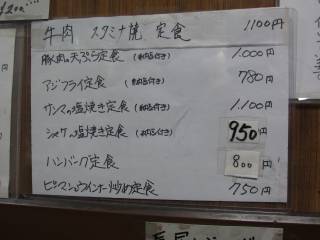 牛肉 スタミナ焼 定食 1100円
豚肉の天ぷら定食 (納豆付き) 1.000円
アジフライ定食 (納豆付き) 780円
サンマの塩焼き定食 (納豆付き) 1.100円
シャケの塩焼き定食 (納豆付き) 950円
ハンバーグ定食 800円
ピーマンとウインナー炒め定食 750円